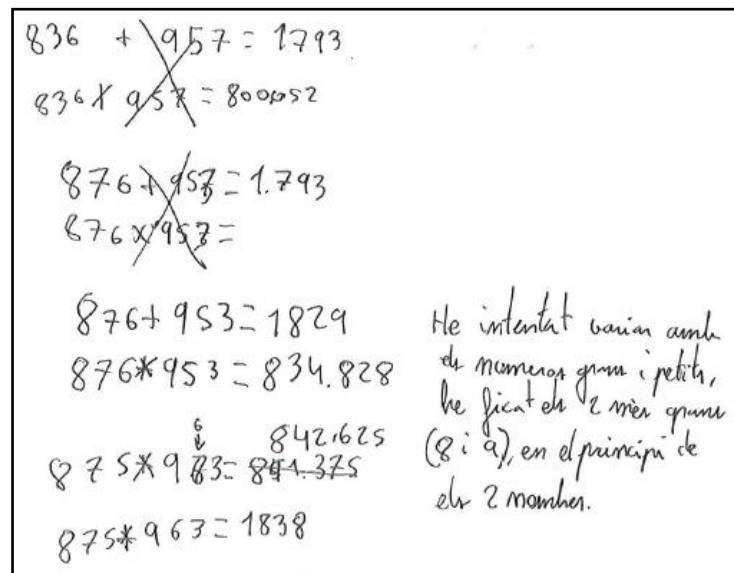 836 + 957 = 1793
836 X 957 = 800052
876 + 953 = 1.793
876 x 953 =
876 + 953 = 1829
876 * 953 = 834.828
6
842.625
875 * 983 = 841.375
875 * 963 = 1838
He intentat variar amb
els numeros grans i petits,
he ficat els 2 més grans
(8 i 9), en el principi de
els 2 nombres.